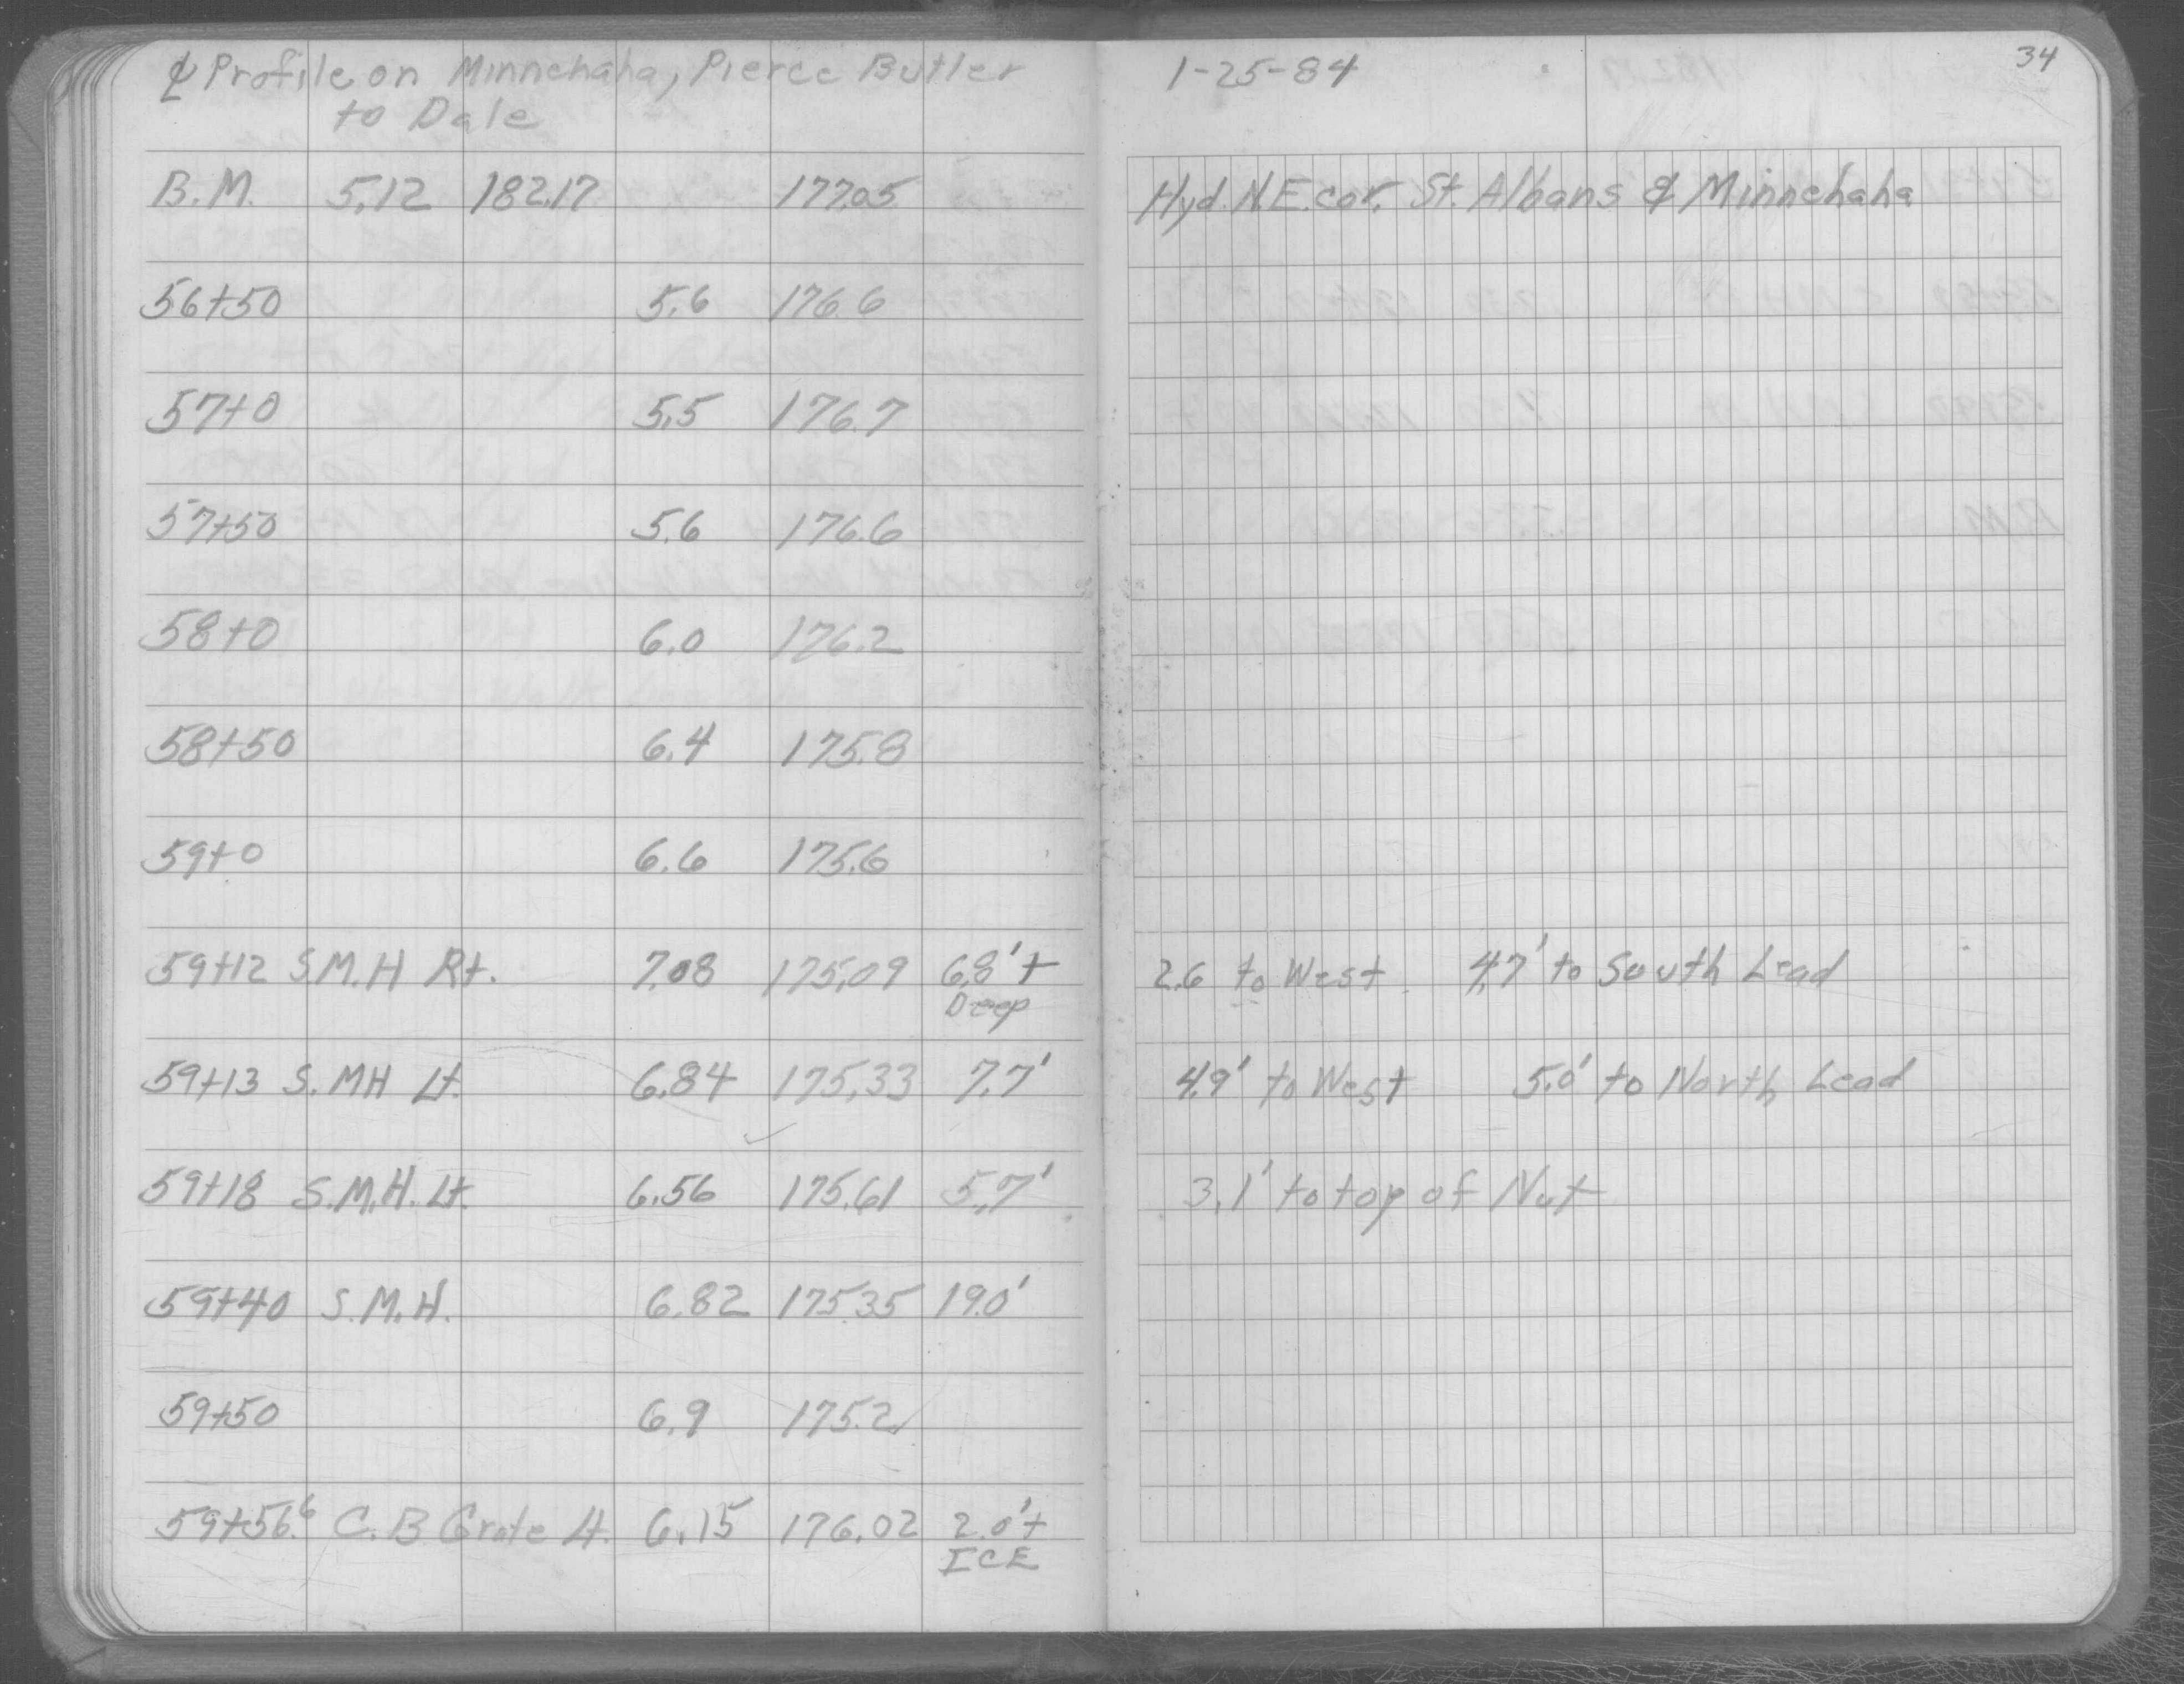 ℄ Profile on Minnehaha, Pierce Butler
to Dale
1-25-84
34
B.M. 5.12 182.17 177.05 Hyd. N.E. cor. St. Albans & Minnehaha
56+50 5.6 176.6
57+0 5.5 176.7
57+50 5.6 176.6
58+0 6.0 176.2
58+50 6.4 175.8
59+0 6.6 175.6
59+12 S.M.H Rt. 7.08 175.09 6.8'± 2.6 to West 4.7' to South Lead
Deep
59+13 S. MH Lt. 6.84 175.33 7.7' 4.9' to West 5.0' to North Lead
59+18 S.M.H. Lt. 6.56 175.61 5.7' 3.1' to top of Nut
59+40 S.M.H. 6.82 175.35 19.0'
59+50 6.9 175.2
59+56.6 C.B Grate Lt. 6.15 176.02 2.0'±
ICE